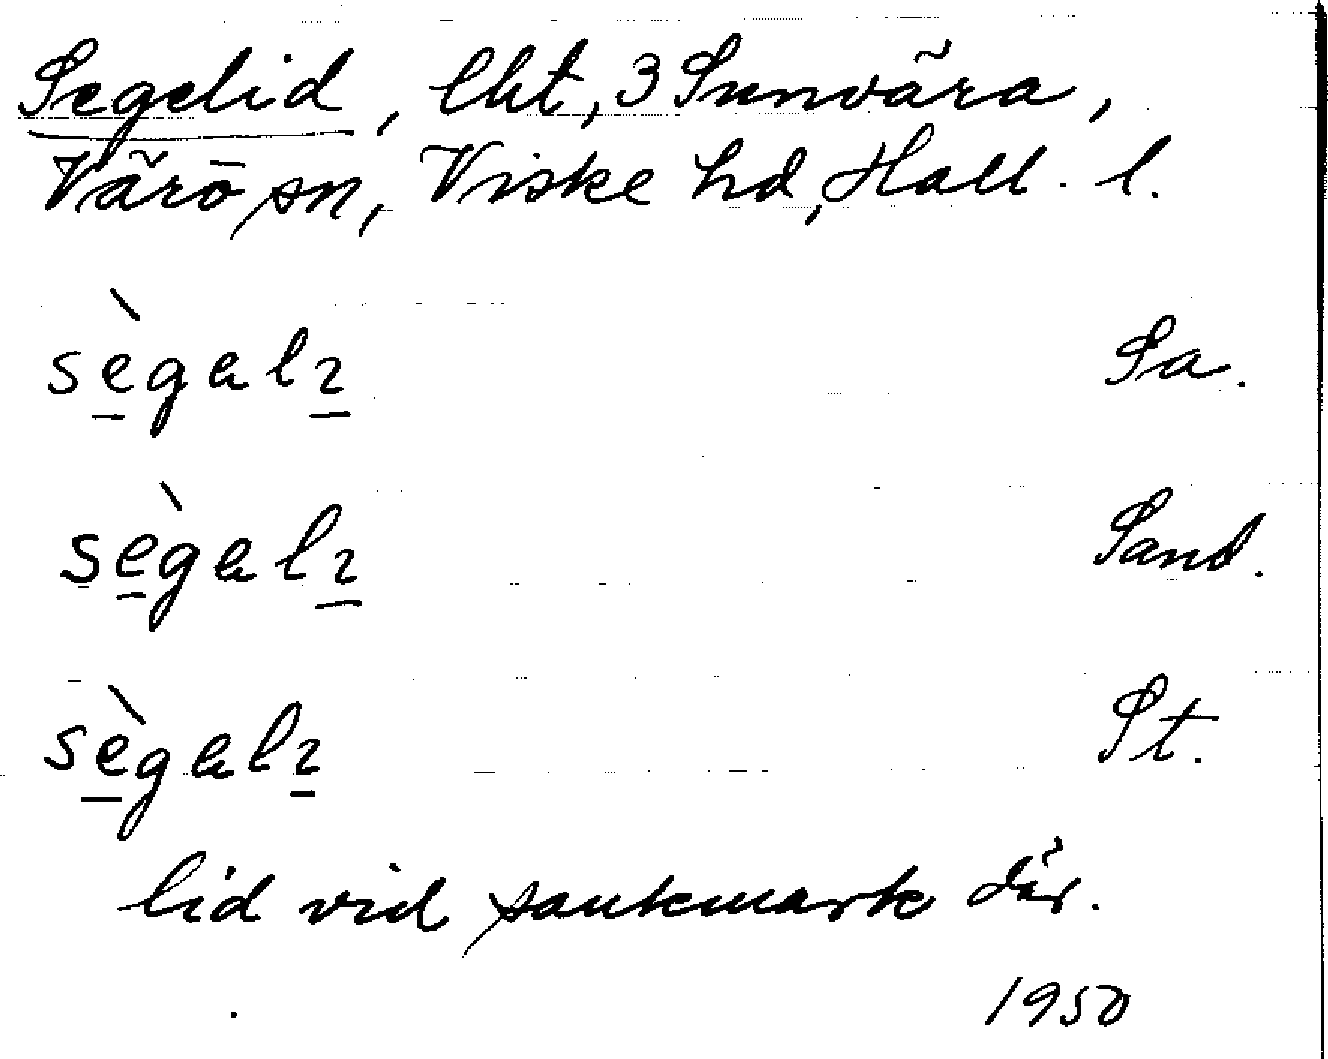 Segelid, lht, 3 Sunvära,
Värö sn, Viske hd, Hall. l.
sègalɪ Sa.
sègalɪ Sand.
sègalɪ St.
lid vid sankmark där.
1950